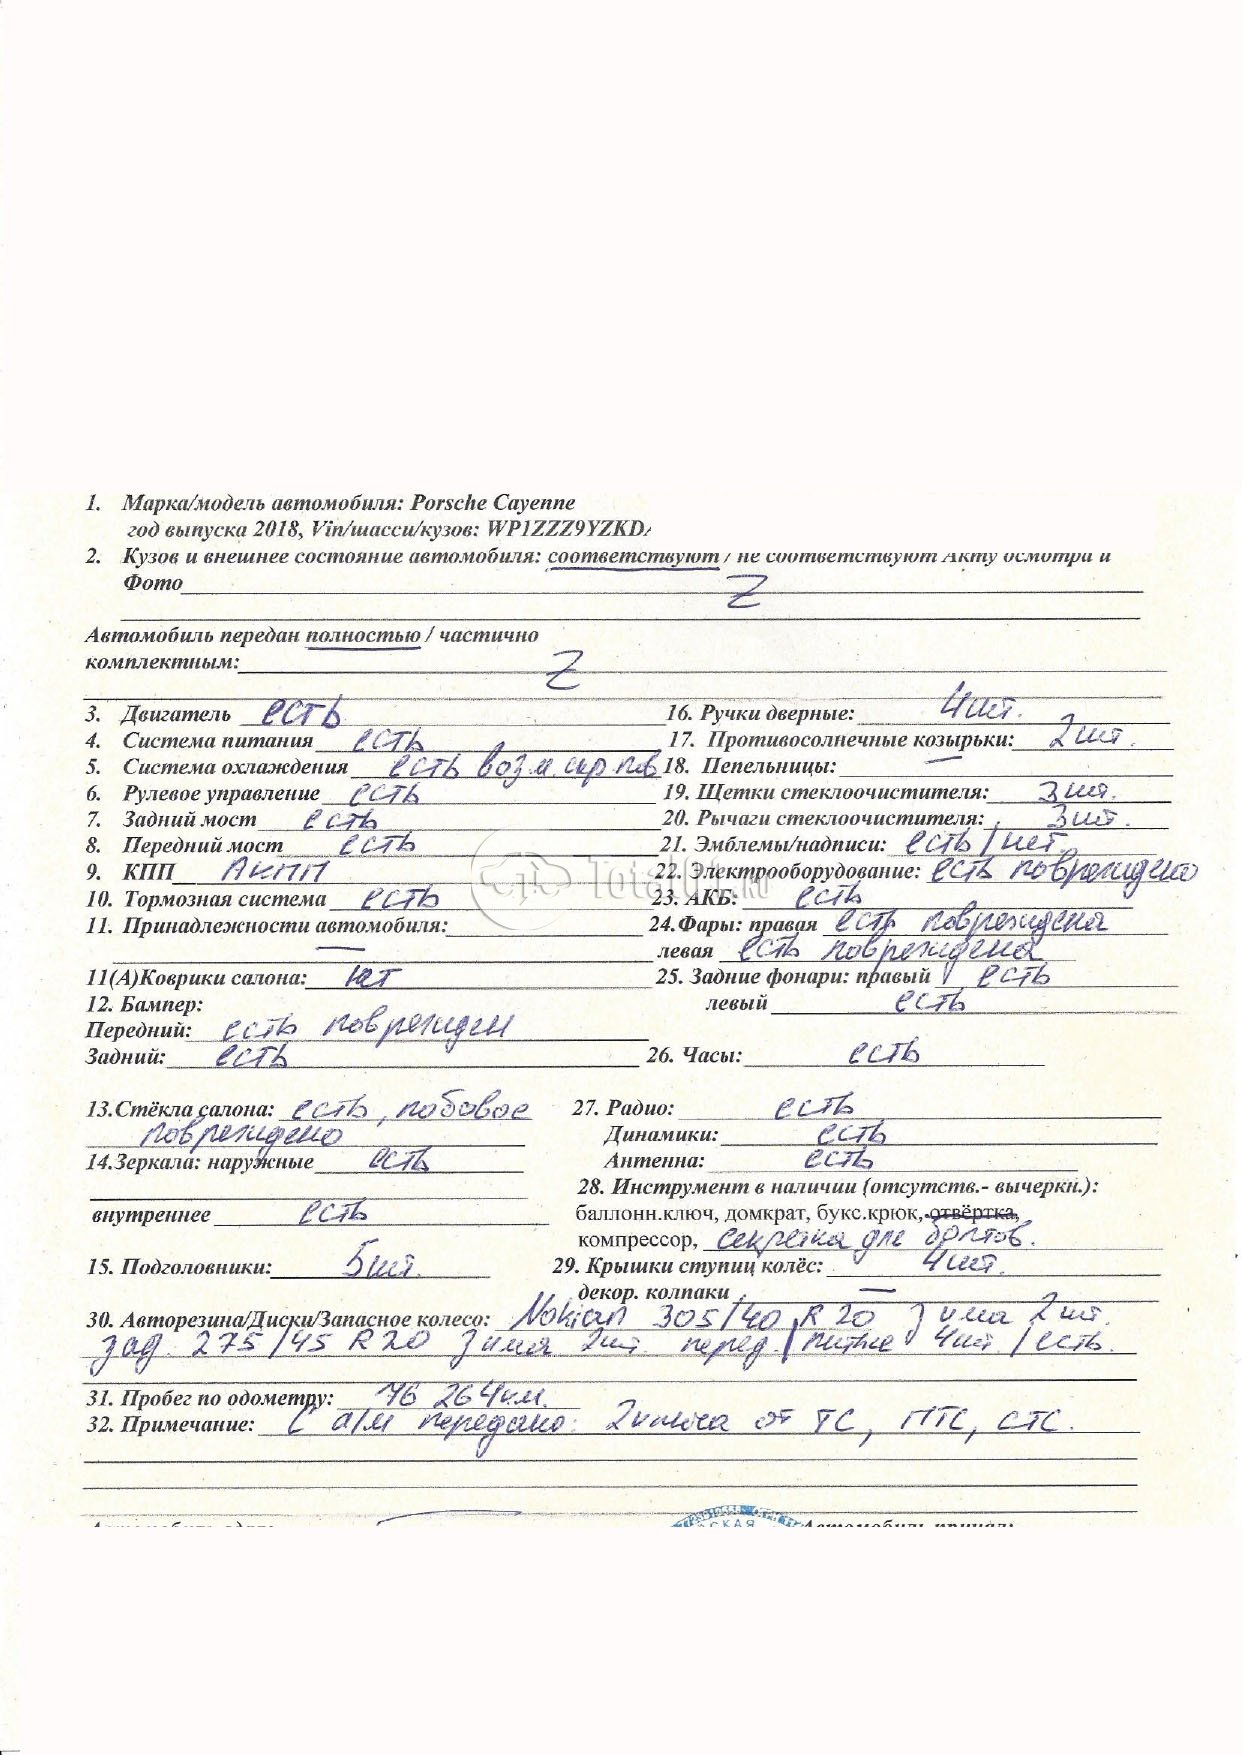 1. Марка/модель автомобиля: Porsche Cayenne
год выпуска 2018, Vin/шасси/кузов: WP1ZZZ9YZKD
2. Кузов и внешнее состояние автомобиля: соответствуют / не соответствуют Акту осмотра и
Фото Z
Автомобиль передан полностью / частично
комплектным: Z
3. Двигатель есть
16. Ручки дверные: 4шт.
4. Система питания есть
17. Противосолнечные козырьки: 2шт.
5. Система охлаждения есть возм. скр пов
18. Пепельницы: —
6. Рулевое управление есть
19. Щетки стеклоочистителя: 3шт.
7. Задний мост есть
20. Рычаги стеклоочистителя: 3шт.
8. Передний мост есть
21. Эмблемы/надписи: есть / нет.
9. КПП АКПП
22. Электрооборудование: есть повреждено
TotalOt.RU
10. Тормозная система есть
23. АКБ: есть
11. Принадлежности автомобиля: —
24.Фары: правая есть повреждена
левая есть повреждена
11(А)Коврики салона: нет
25. Задние фонари: правый есть
12. Бампер:
левый есть
Передний: есть поврежден
Задний: есть
26. Часы: есть
13.Стёкла салона: есть, лобовое
повреждено
27. Радио: есть
Динамики: есть
14.Зеркала: наружные есть
Антенна: есть
28. Инструмент в наличии (отсутств.- вычеркн.):
внутреннее есть
баллонн.ключ, домкрат, букс.крюк, отвёртка,
компрессор, секретка для болтов.
15. Подголовники: 5шт.
29. Крышки ступиц колёс: 4шт.
декор. колпаки —
30. Авторезина/Диски/Запасное колесо: Nokian 305/40 R20 зима 2шт.
зад. 275/45 R20 зима 2шт. перед./литые 4шт./есть.
31. Пробег по одометру: 76 264км.
32. Примечание: С а/м передано: 2ключа от ТС, ПТС, СТС.
СКАЯ
Автомобиль принял: